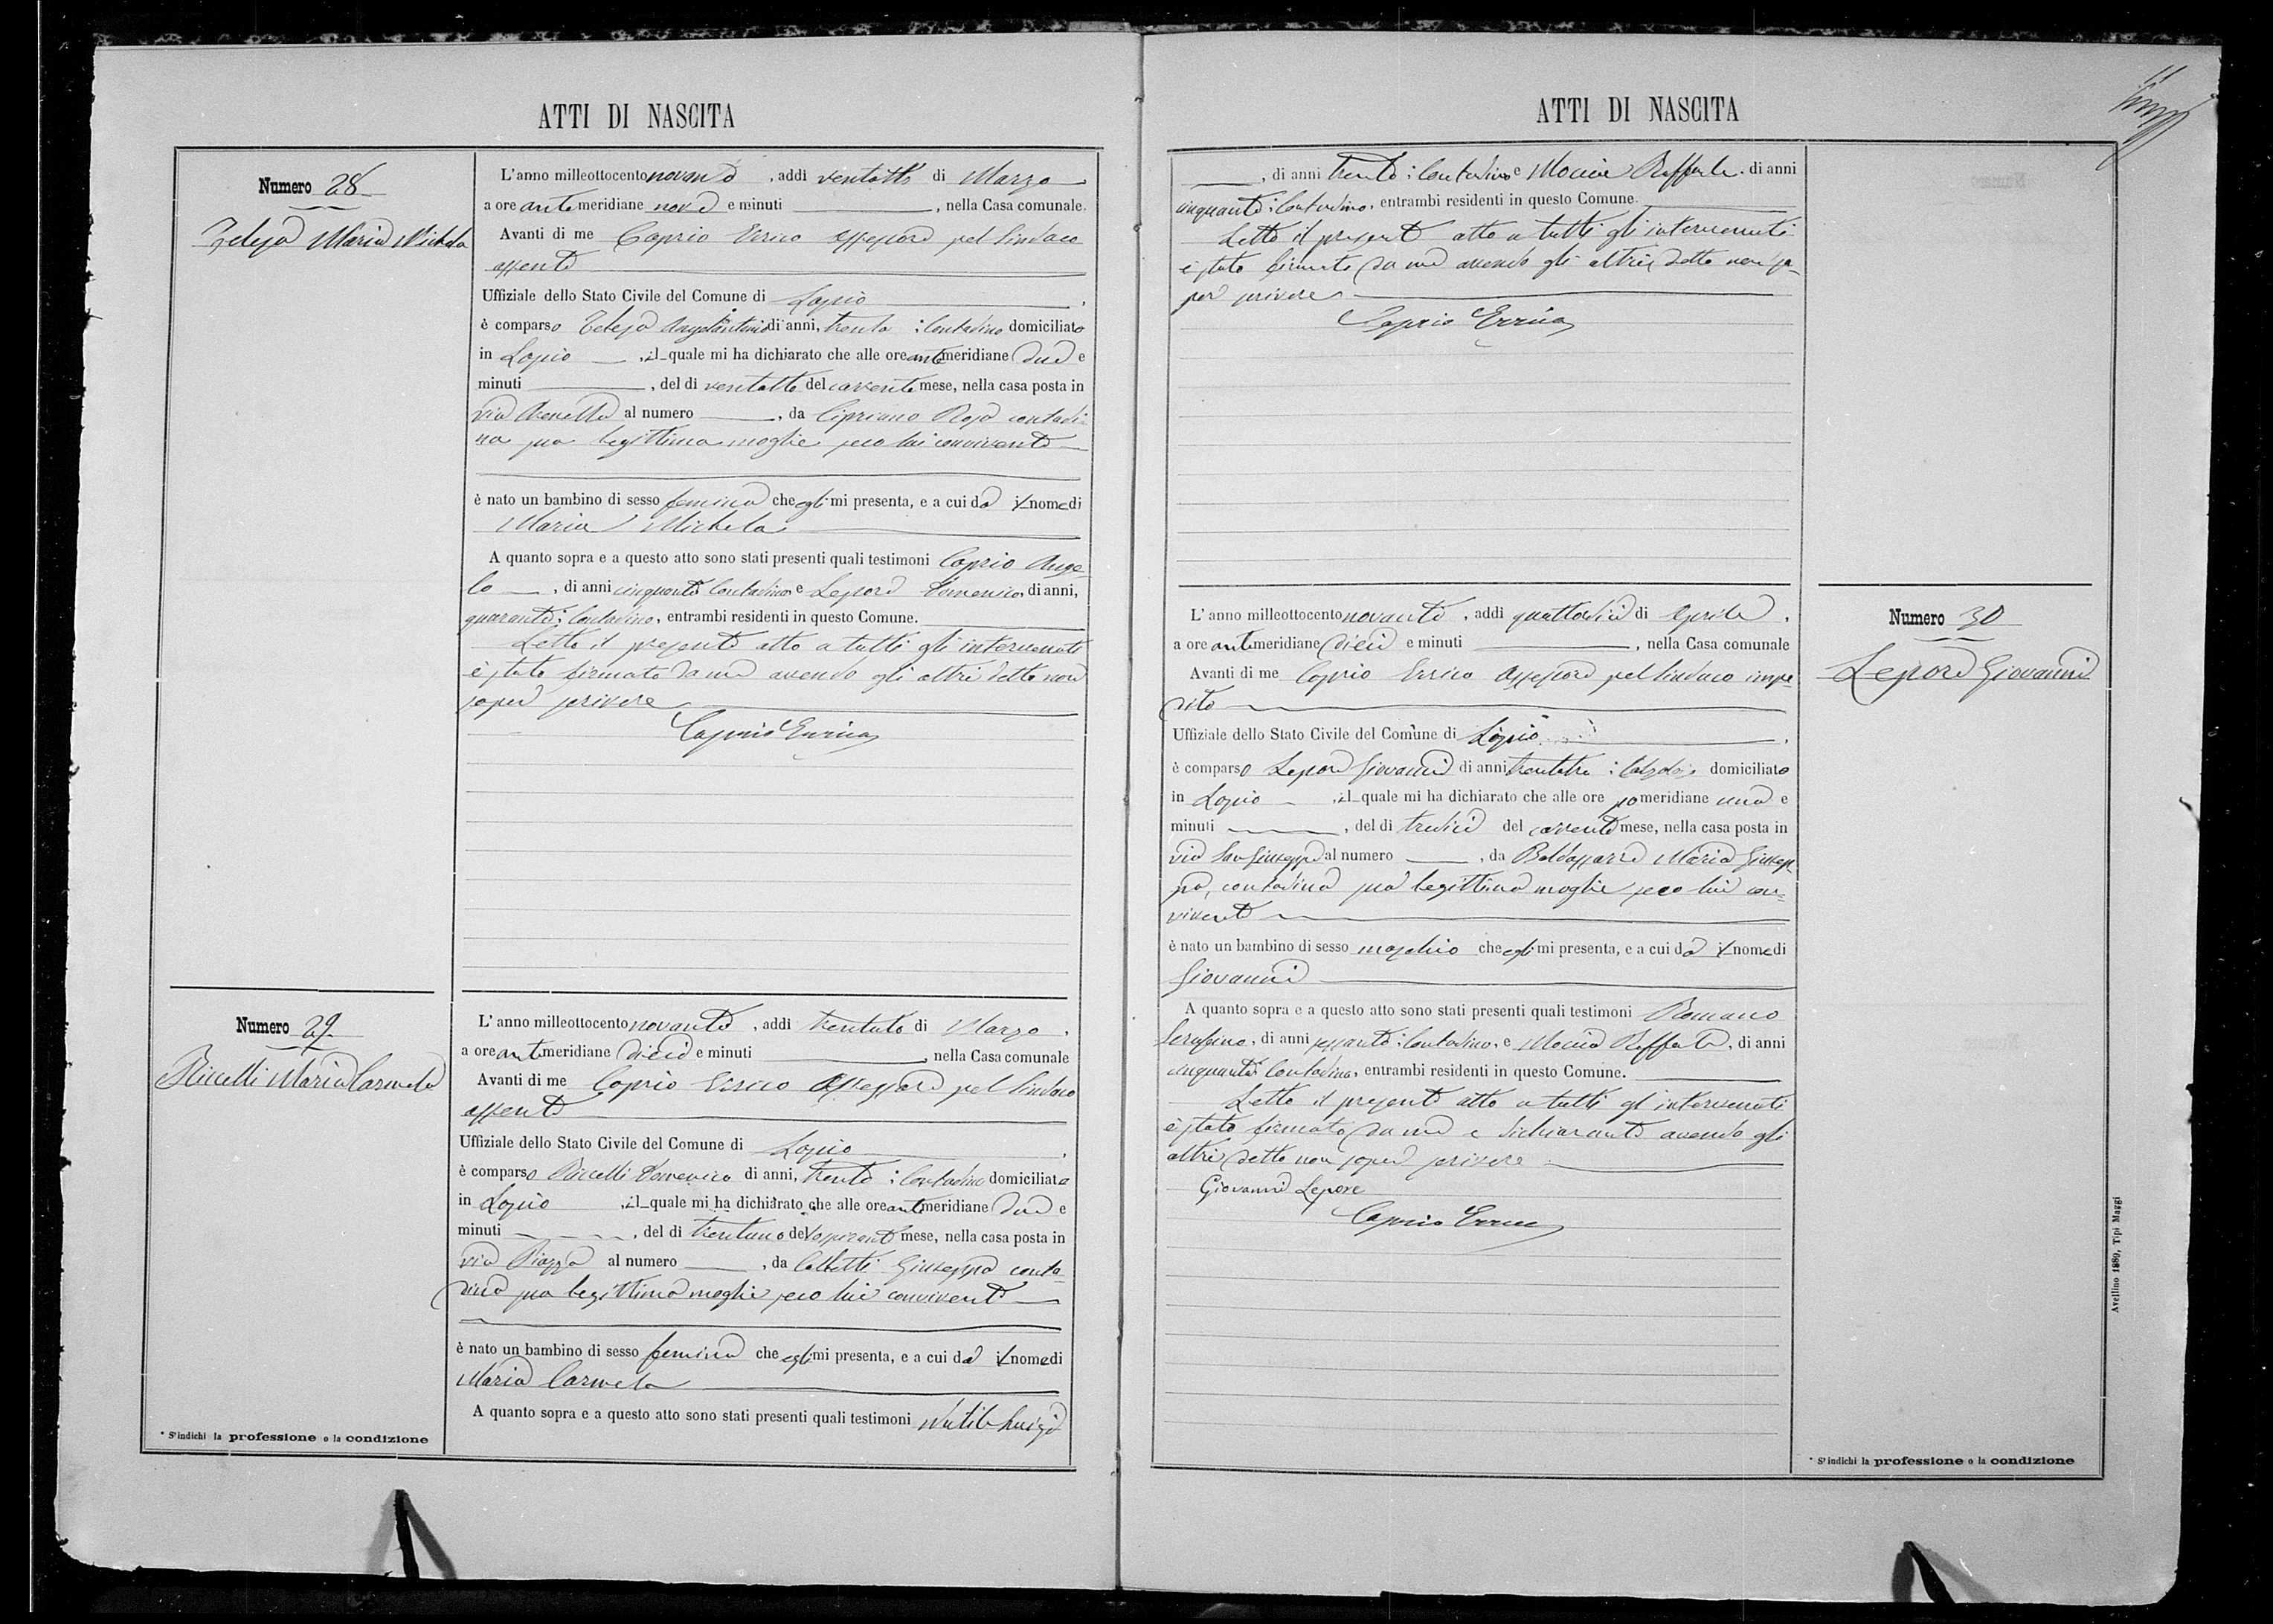 ATTI DI NASCITA
Numero 28
Telesa Maria Michela
L'anno milleottocentonovanta, addi ventotto di Marzo
a ore antemeridiane nove e minuti, nella Casa comunale.
Avanti di me Caprio Errico Assessore pel Sindaco
assente
Uffiziale dello Stato Civile del Comune di Lapio
è comparso Telesa Angelantonio di anni, trenta : Contadino domiciliato
in Lapio, il quale mi ha dichiarato che alle ore antemeridiane due e
minuti, del dì ventotto del corrente mese, nella casa posta in
via al numero, da Cipriano Rosa contadi-
na sua legittima moglie seco lui convivente
è nato un bambino di sesso femina che egli mi presenta, e a cui da il nome di
Maria Michela
A quanto sopra e a questo atto sono stati presenti quali testimoni Caprio Ange-
lo, di anni cinquanta Contadino e Lepore Domenico, di anni,
quaranta : Contadino, entrambi residenti in questo Comune.
Letto il presente atto a tutti gli intervenuti
è stato firmato da me avendo gli altri detto non
saper scrivere
Caprio Errico
Numero 29
Riccelli Maria Carmela
L'anno milleottocentonovanta, addi trentuno di Marzo,
a ore antemeridiane dieci e minuti, nella Casa comunale
Avanti di me Caprio Errico Assessore pel Sindaco
assente
Uffiziale dello Stato Civile del Comune di Lapio
è comparso Riccelli Domenico di anni, trenta : Contadino domiciliato
in Lapio, il quale mi ha dichiarato che alle ore antemeridiane due e
minuti, del dì trentuno del mese, nella casa posta in
via Piazza al numero, da Giuseppa conta-
dina sua legittima moglie seco lui convivente
è nato un bambino di sesso femina che egli mi presenta, e a cui da il nome di
Maria Carmela
A quanto sopra e a questo atto sono stati presenti quali testimoni Luigi
* S'indichi la professione o la condizione
ATTI DI NASCITA
, di anni trenta : Contadino e Moccia Raffaele, di anni
cinquanta : Contadino, entrambi residenti in questo Comune.
Letto il presente atto a tutti gli intervenuti
è stato firmato da me avendo gli altri detto non sa-
per scrivere
Caprio Errico
Numero 30
Lepore Giovanni
L'anno milleottocentonovanta, addi quattordici di Aprile,
a ore antimeridiane dieci e minuti, nella Casa comunale
Avanti di me Caprio Errico Assessore pel Sindaco impe-
dito
Uffiziale dello Stato Civile del Comune di Lapio
è comparso Lepore Giovanni di anni trentatre : Calzolaio domiciliato
in Lapio, il quale mi ha dichiarato che alle ore pomeridiane una e
minuti, del dì tredici del corrente mese, nella casa posta in
via San Giuseppe al numero, da Baldassarre Maria Giusep-
pa, contadina sua legittima moglie seco lui con-
vivente
è nato un bambino di sesso maschio che egli mi presenta, e a cui da il nome di
Giovanni
A quanto sopra e a questo atto sono stati presenti quali testimoni Romano
Serafino, di anni sessanta : Contadino, e Moccia Raffaele, di anni
cinquanta Contadino, entrambi residenti in questo Comune.
Letto il presente atto a tutti gl intervenuti
è stato firmato da me e dichiarante avendo gli
altri detto non saper scrivere
Giovanni Lepore
Caprio Errico
* S'indichi la professione o la condizione
Avellino 1889, Tipi Maggi